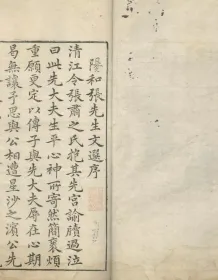 隆和張先生文選序
清江令張肅之氏抱其先宮諭牘過泣
曰此先大夫生平心神所寄然簡裒煩
重願更定以傳子與先大夫辱在心期
曷無讓予思與公相遭星沙之濱公先